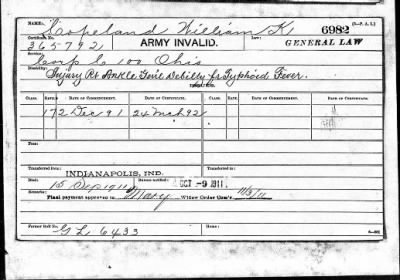 NAME: Copeland William K (3-P. A. I.)
Certificate No. Class: Law: 6982
365792 ARMY INVALID. GENERAL LAW
Service:
Corp C 100 Ohio
Disability:
Injury Rt Ankle Genl Debility fr Typhoid Fever.
CLASS. RATE. DATE OF COMMENCEMENT. DATE OF CERTIFICATE. CLASS. RATE. DATE OF COMMENCEMENT. DATE OF CERTIFICATE.
17 2 Dec 91 24 Mch 92
From:
Transferred from: Transferred to:
INDIANAPOLIS, IND.
Died: Bureau notified:
15 Sep 1911 OCT -9 1911
Remarks:
Final payment approved to Mary Widow Order Com'r 11/3/11
Former Roll No. Home:
G L 6433